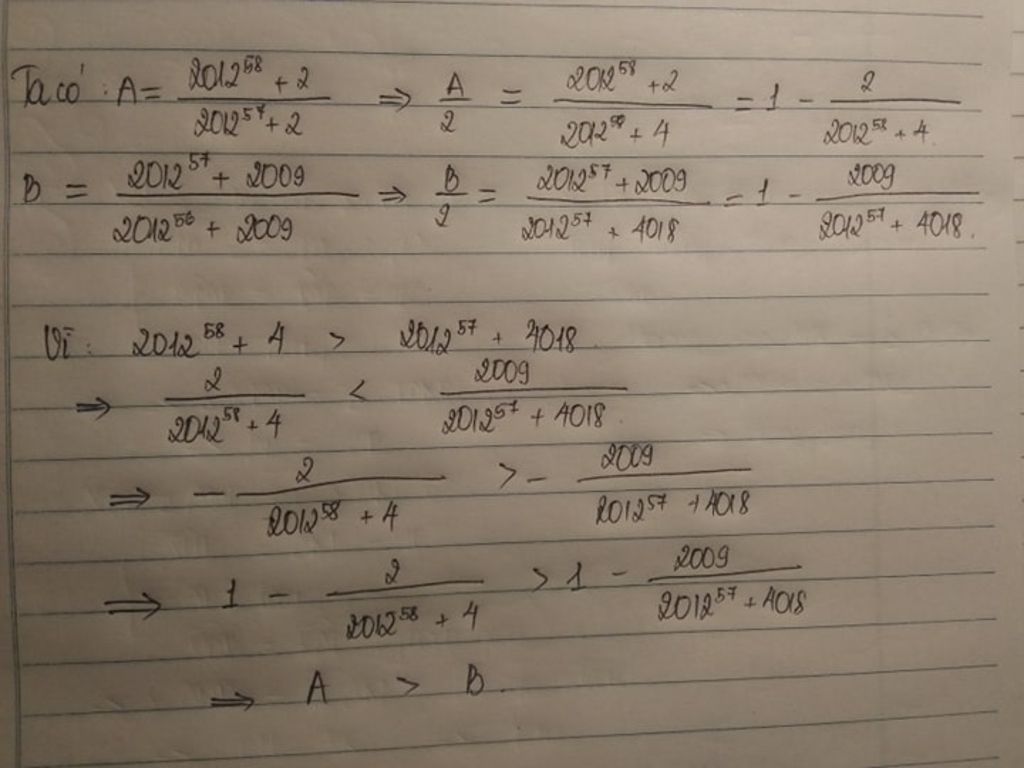 Ta có: A = (2012^58 + 2)/(2012^57 + 2) ⇒ A/2 = (2012^58 + 2)/(2012^58 + 4) = 1 - 2/(2012^58 + 4)
B = (2012^57 + 2009)/(2012^56 + 2009) ⇒ B/2 = (2012^57 + 2009)/(2012^57 + 4018) = 1 - 2009/(2012^57 + 4018).
Vì: 2012^58 + 4 > 2012^57 + 4018
⇒ 2/(2012^58 + 4) < 2009/(2012^57 + 4018).
⇒ - 2/(2012^58 + 4) > - 2009/(2012^57 + 4018)
⇒ 1 - 2/(2012^58 + 4) > 1 - 2009/(2012^57 + 4018)
⇒ A > B.